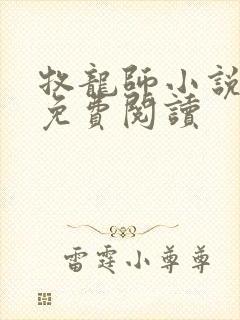 牧龍師小說
免費閱讀
雷霆小尊尊